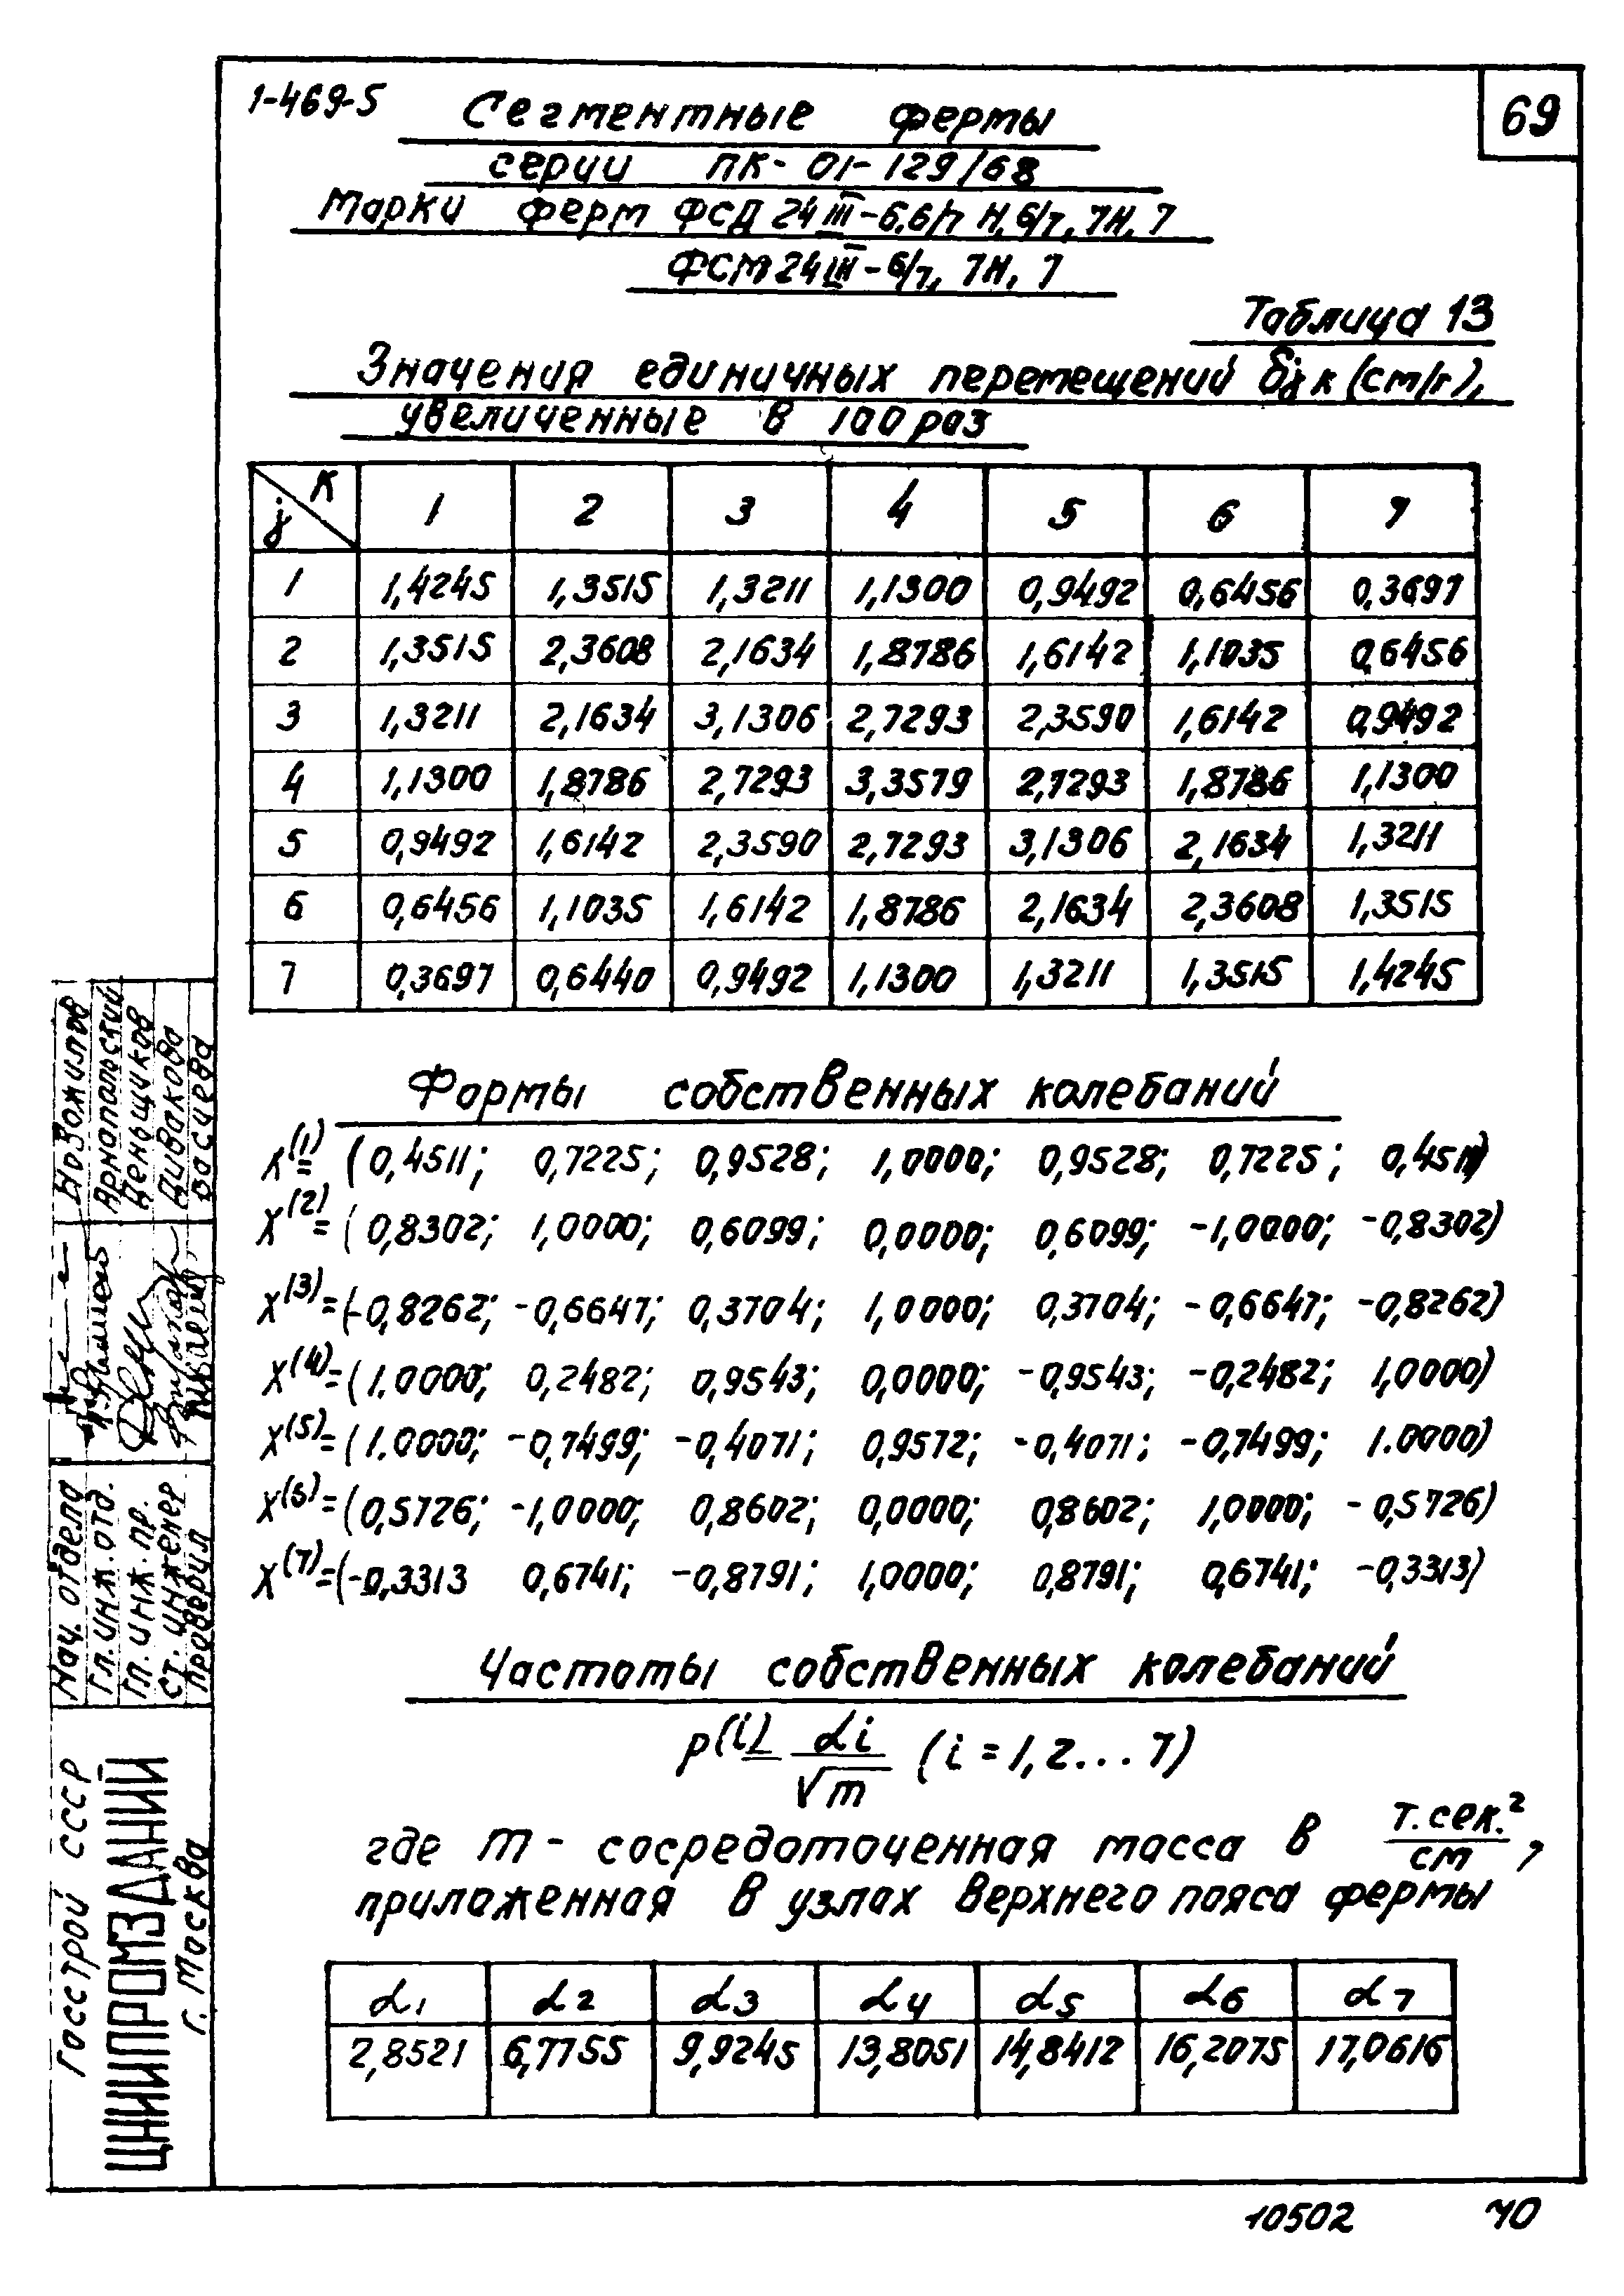 1-469-5
69
Сегментные фермы
серии ПК-01-129/68
Марки ферм ФСД 24 III-6,6/7 Н,6/7, 7Н, 7
ФСМ 24 III-6/7, 7Н, 7
Таблица 13
Значения единичных перемещений δjк (см/т),
увеличенные в 100 раз
j К 1 2 3 4 5 6 7
1 1,4245 1,3515 1,3211 1,1300 0,9492 0,6456 0,3697
2 1,3515 2,3608 2,1634 1,8786 1,6142 1,1035 0,6456
3 1,3211 2,1634 3,1306 2,7293 2,3590 1,6142 0,9492
4 1,1300 1,8786 2,7293 3,3579 2,7293 1,8786 1,1300
5 0,9492 1,6142 2,3590 2,7293 3,1306 2,1634 1,3211
6 0,6456 1,1035 1,6142 1,8786 2,1634 2,3608 1,3515
7 0,3697 0,6440 0,9492 1,1300 1,3211 1,3515 1,4245
Формы собственных колебаний
X(1)= (0,4511; 0,7225; 0,9528; 1,0000; 0,9528; 0,7225; 0,4511)
X(2)= (0,8302; 1,0000; 0,6099; 0,0000; 0,6099; -1,0000; -0,8302)
X(3)=(-0,8262; -0,6647; 0,3704; 1,0000; 0,3704; -0,6647; -0,8262)
X(4)=(1.0000; 0,2482; 0,9543; 0,0000; -0,9543; -0,2482; 1,0000)
X(5)=(1.0000; -0,7499; -0,4071; 0,9572; -0,4071; -0,7499; 1.0000)
X(6)=(0,5726; -1,0000; 0,8602; 0,0000; 0,8602; 1,0000; -0,5726)
X(7)=(-0,3313 0,6741; -0,8791; 1,0000; 0,8791; 0,6741; -0,3313)
Частоты собственных колебаний
p(i)= αi/√m (i = 1, 2... 7)
где m - сосредоточенная масса в т.сек.²/см,
приложенная в узлах верхнего пояса фермы
α1 α2 α3 α4 α5 α6 α7
2,8521 6,7755 9,9245 13,8051 14,8412 16,2075 17,0616
Госстрой СССР
ЦНИИПРОМЗДАНИЙ
г. Москва
Нач. отдела
Гл. инж. отд.
Гл. инж. пр.
Ст. инженер
Проверил
Новожилов
Ярнопольский
Деньщиков
Дивакова
10502 70